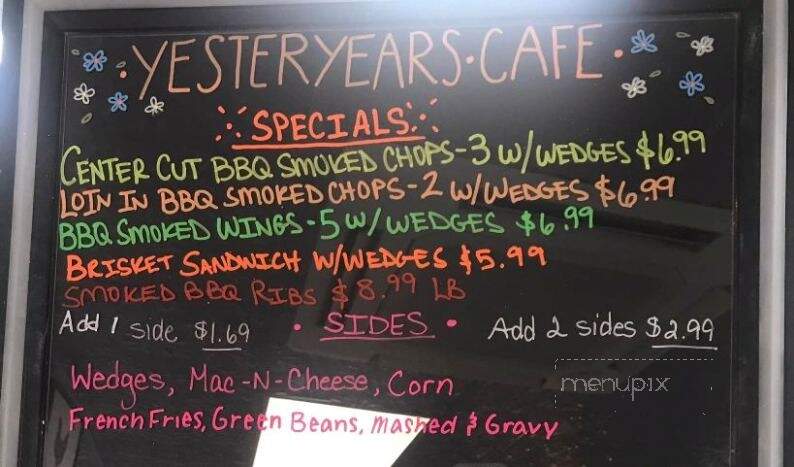 YESTERYEARS·CAFE
SPECIALS
CENTER CUT BBQ SMOKED CHOPS-3 W/WEDGES $6.99
LOIN IN BBQ SMOKED CHOPS-2 W/WEDGES $6.99
BBQ SMOKED WINGS-5 W/WEDGES $6.99
BRISKET SANDWICH W/WEDGES $5.99
SMOKED BBQ RIBS $8.99 LB
Add 1 side $1.69 • SIDES • Add 2 sides $2.99
Wedges, Mac-N-Cheese, Corn
menupix
French Fries, Green Beans, Mashed & Gravy